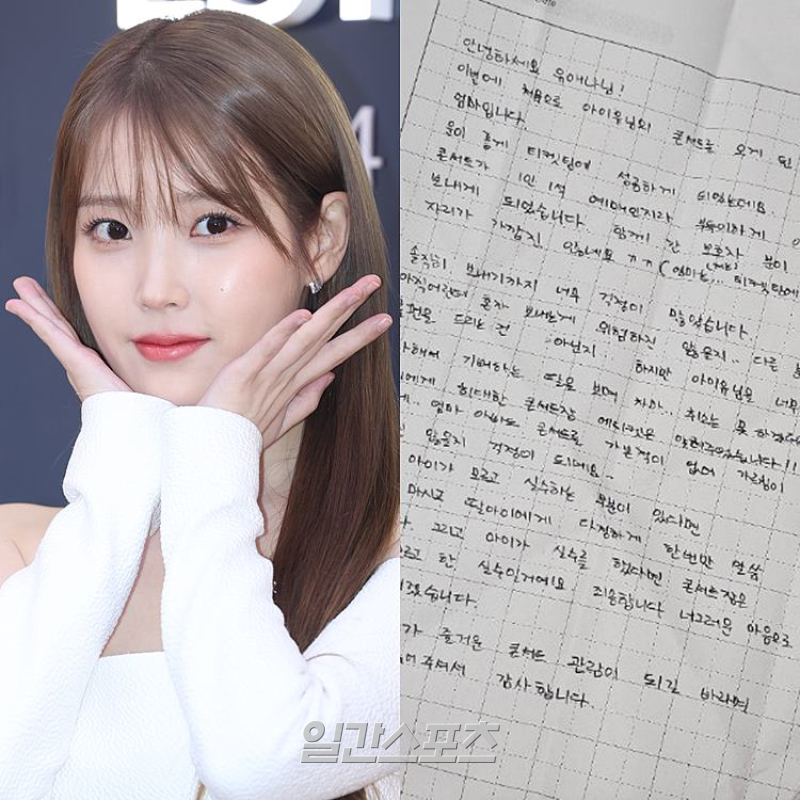 4
안녕하세요 유애나님!
이번에 처음으로 아이유님의 콘서트를 오게 된
엄마입니다.
운이 좋게 티켓팅에 성공하게 되었는데요.
콘서트가 1인 1석 예매인지라 부득이하게
보내게 되었습니다. 함께 간 보호자 분이
자리가 가깝진 않네요 ㅠㅠ ( 엄마는... 티켓팅에
솔직히 보내기까지 너무 걱정이 많았습니다.
아직어린데 혼자 보내는게 위험하진 않을지.. 다른
드리는 건 아닌지.. 하지만 아이유님을 너무
해서 기뻐하는 딸을 보며 차마.. 취소는 못 하겠
에게 최대한 콘서트장 에티켓은 알려주었습니다!!
엄마 아빠도 콘서트를 가본적이 없어 가르침이
않을지 걱정이 되네요..
아이가 모르고 실수하는 부분이 있다면
마시고 딸아이에게 다정하게 한번만 말씀
그리고 아이가 실수를 했다면 콘서트장은
모르고 한 실수일거에요 죄송합니다 너그러운 마음으로
겠습니다.
가 즐거운 콘서트 관람이 되길 바라며
주셔서 감사합니다.
일간스포츠